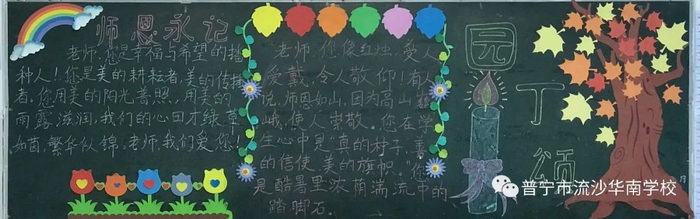 师恩永记
老师,您是幸福与希望的播
种人!您是美的耕耘者,美的传播
者。您用美的阳光普照,用美的
雨露滋润,我们的心田才绿草
如茵,繁华似锦。老师,我们爱您!
老师,您像红烛,受人
爱戴,令人敬仰!有人
说,师恩如山,因为高山巍
峨,使人崇敬。您在学
生心中是真的种子,善
的信使,美的旗帜。您
是酷暑里浓荫,湍流中的
踏脚石。
园
丁
颂
普宁市流沙华南学校